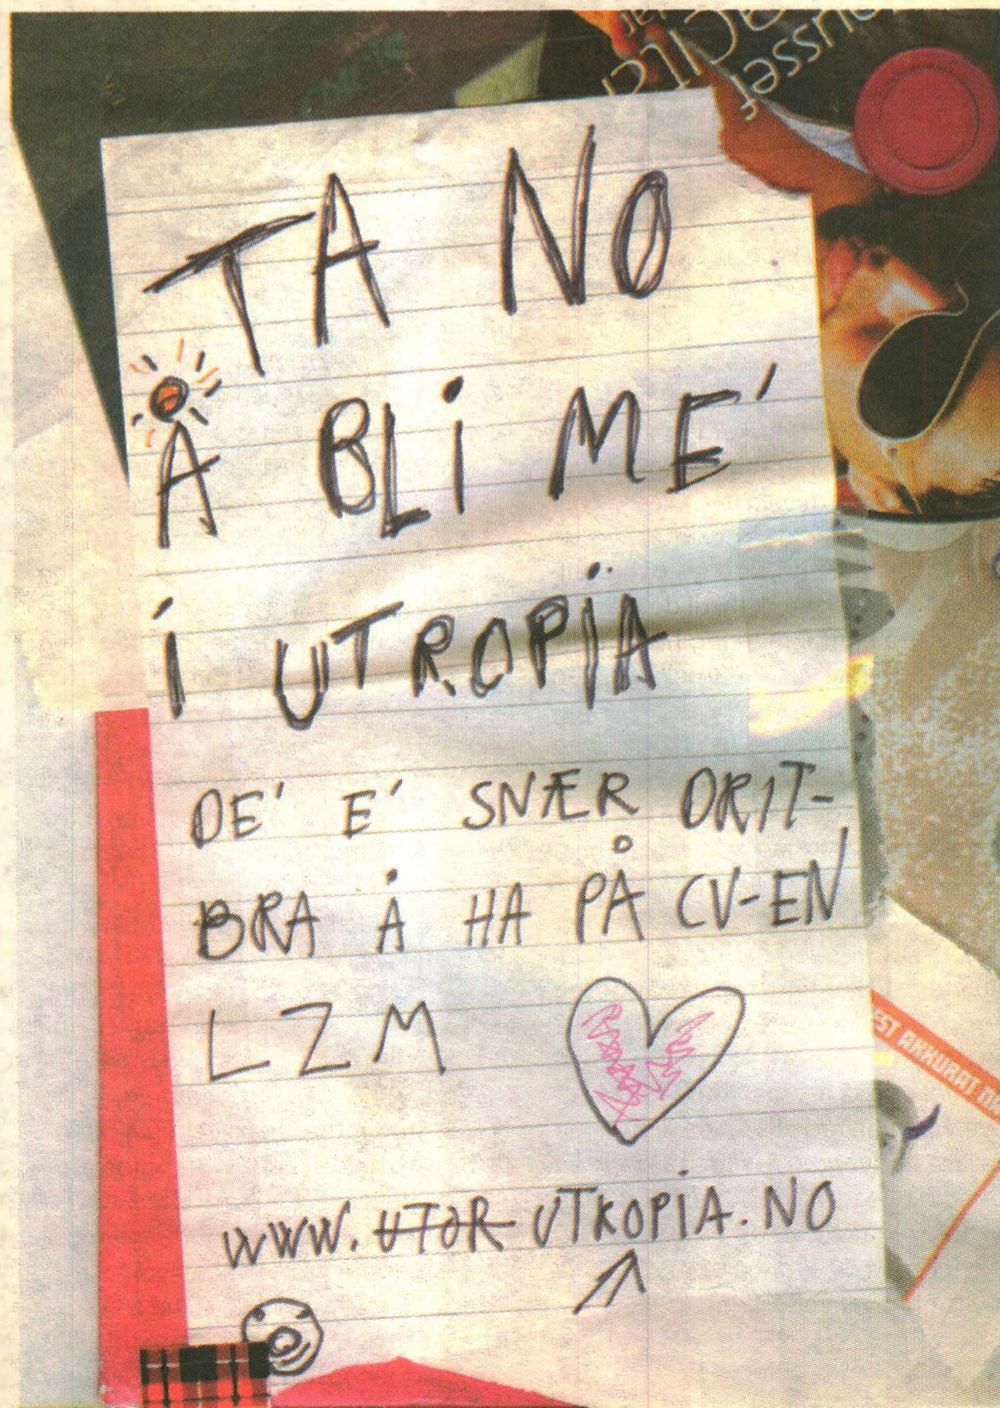 TA NO
Å BLI ME'
I UTROPIA
DE' E' SNÆR DRIT-
BRA Å HA PÅ CV-EN
LZM
WWW. UTOR UTROPIA.NO
EST AKKURAT